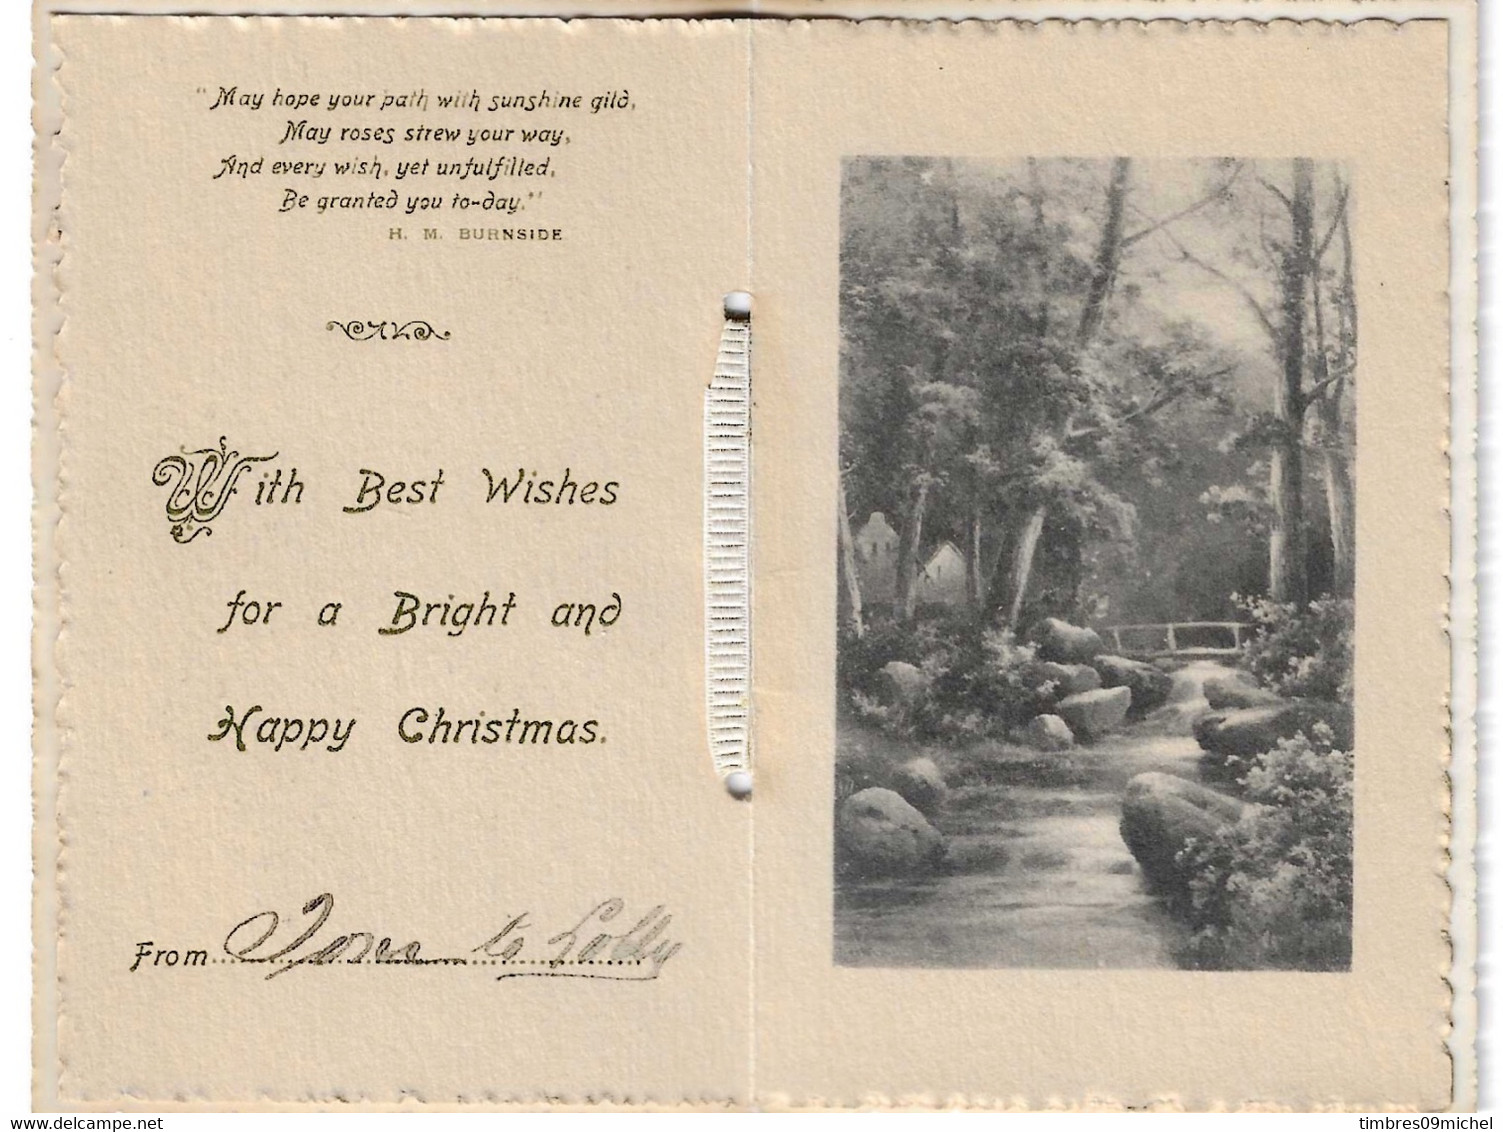 "May hope your path with sunshine gild,
May roses strew your way,
And every wish, yet unfulfilled,
Be granted you to-day."
H. M. BURNSIDE
With Best Wishes
for a Bright and
Happy Christmas.
From to Lolly
delcampe.net
timbres09michel